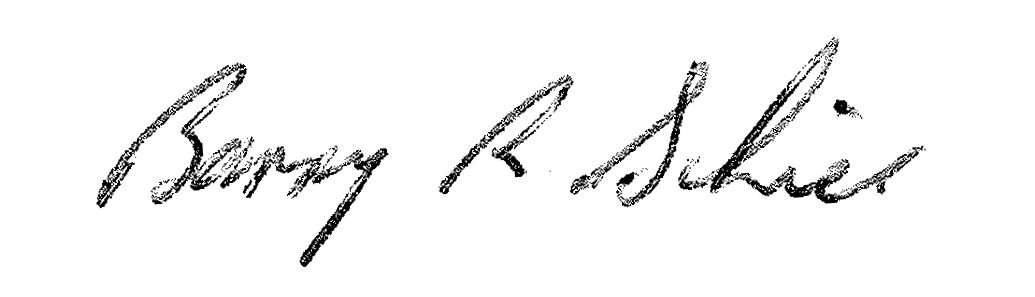 Barry R Schier